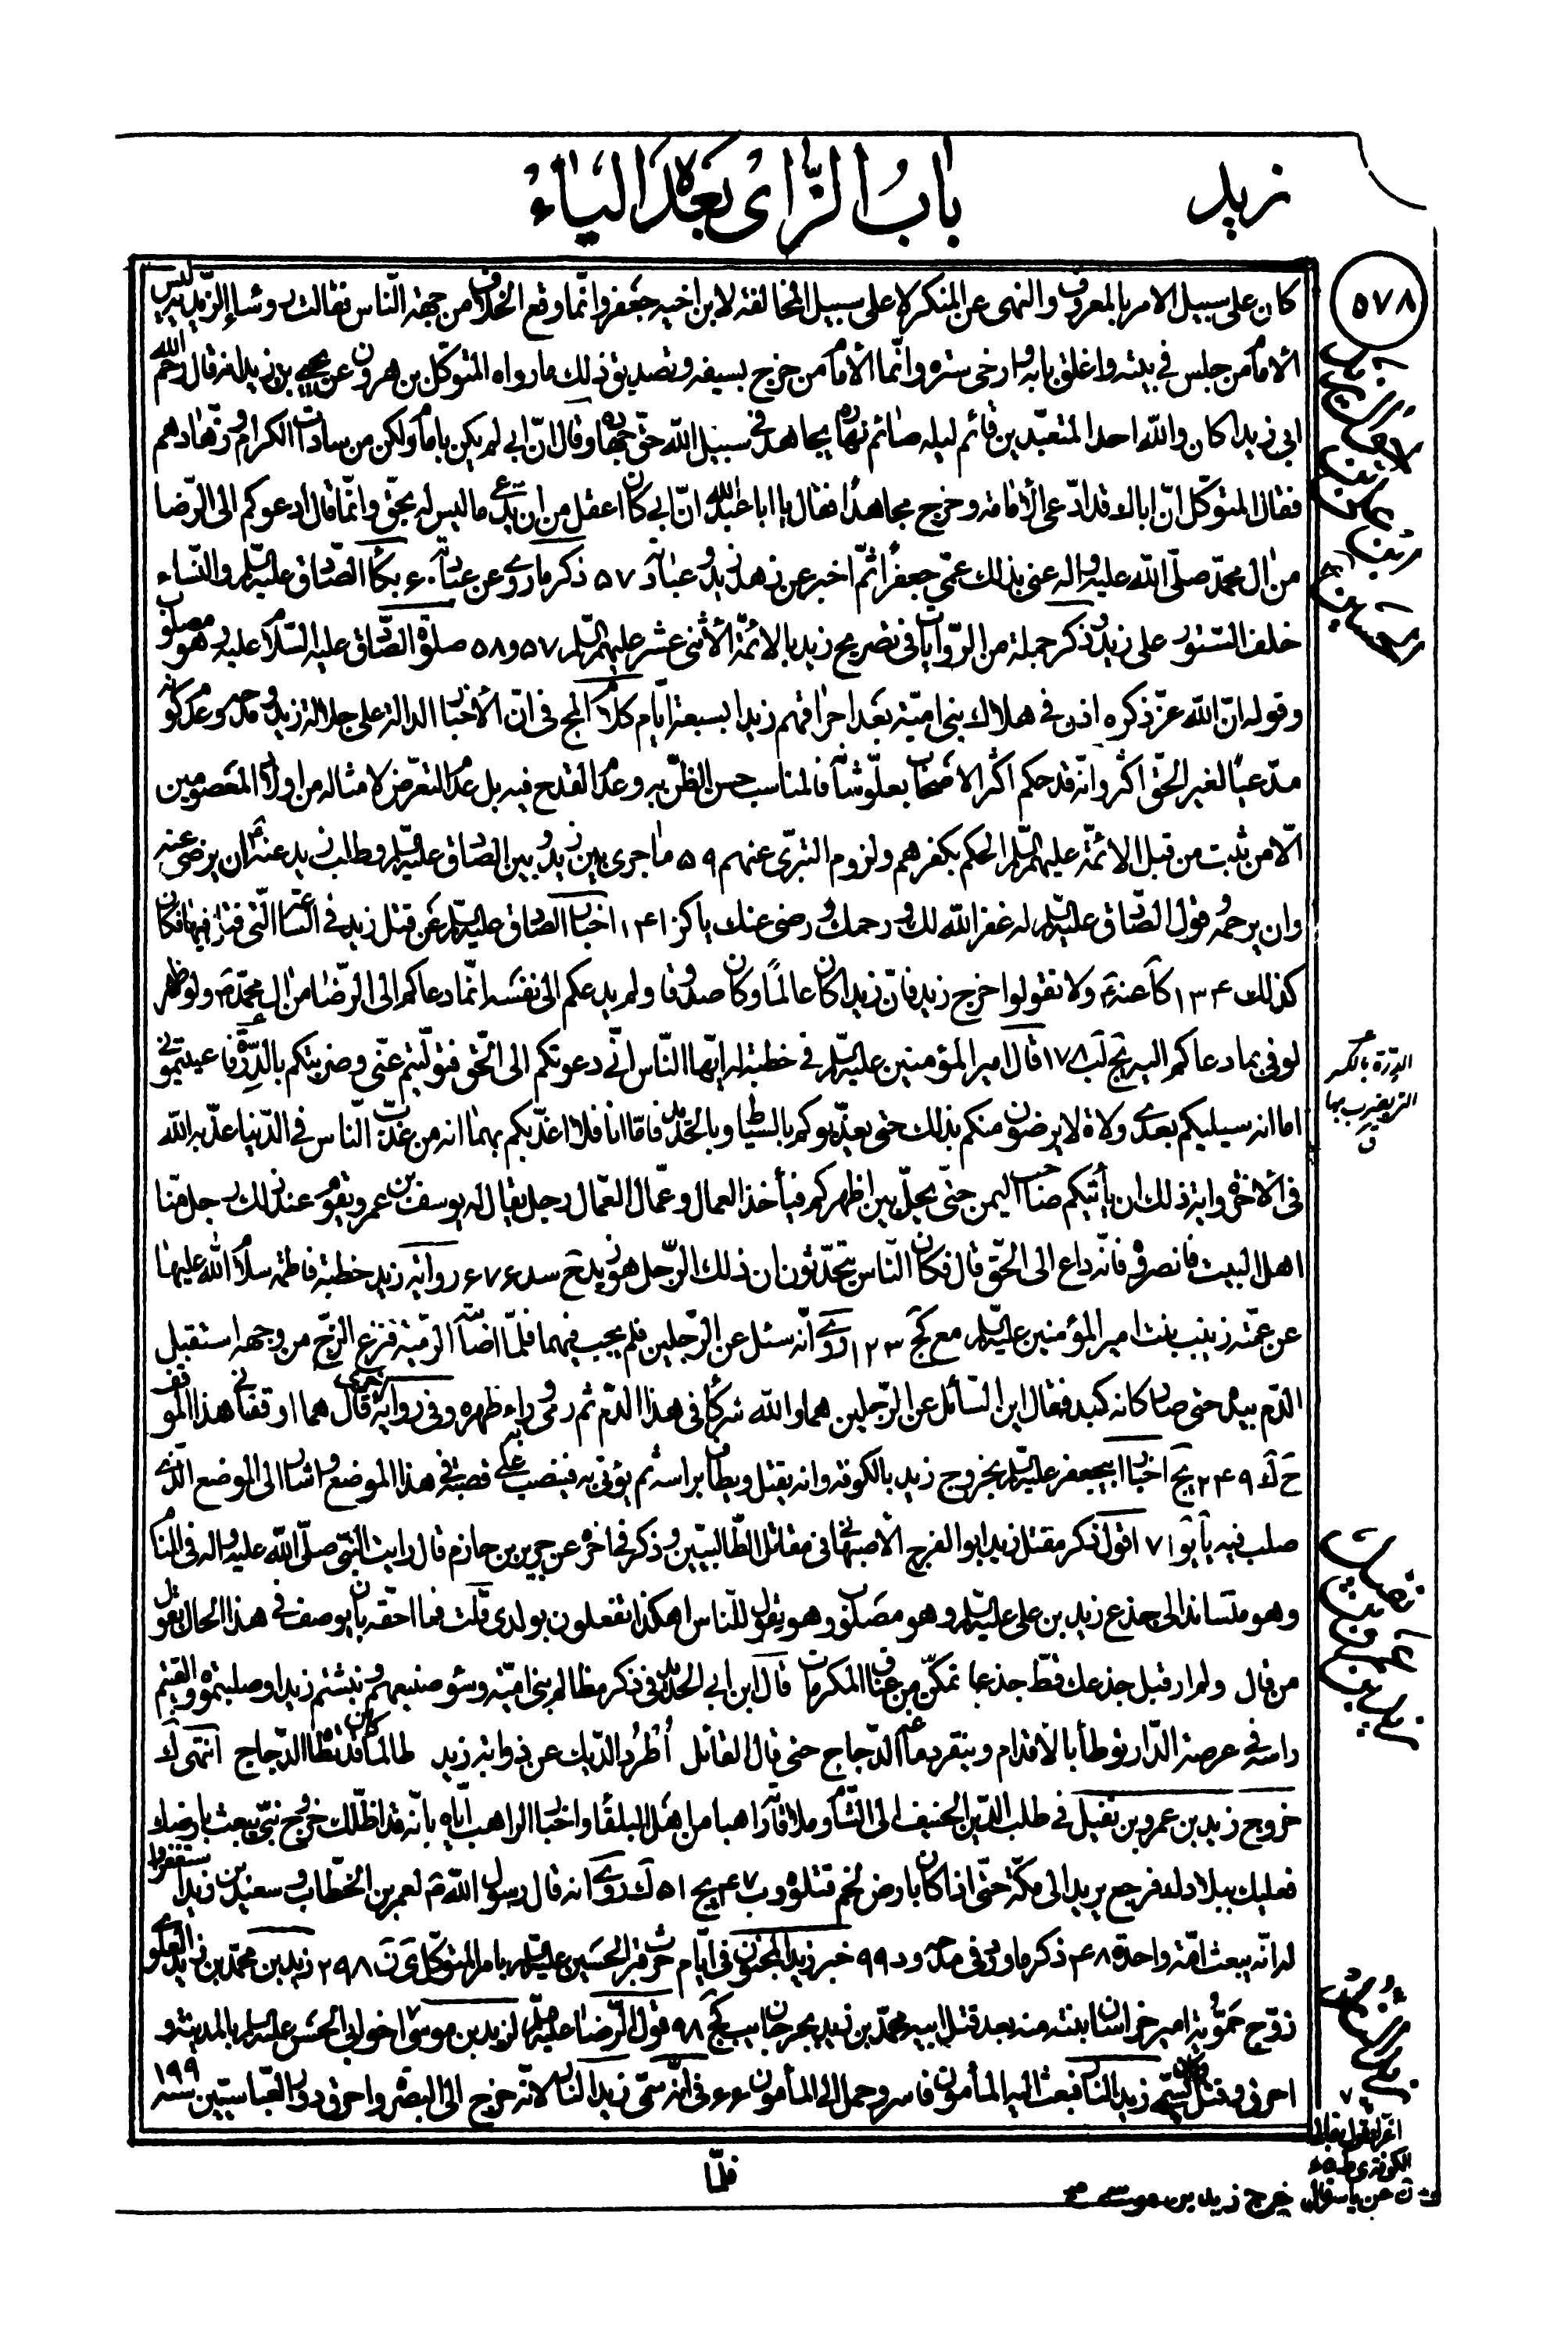 زيد
باب الزاى بعده الياء
٥٧٨
كان على سبيل الامر بالمعروف والنهى عن المنكر لا على سبيل المخالفة لابن اخيه جعفر وانّما وقع الخلاف من جهة النّاس فقالت رؤساء الزّيديّة ليس
الامام من جلس فى بيته واغلق بابه وارخى ستره وانّما الامام من خرج بسيفه وتصديق ذلك ما رواه المتوكّل بن هرون عن يحيى بن زيد انه قال رحم الله
ابى زيدا كان والله احد المتعبّدين قائم ليله صائم نهاره يجاهد فى سبيل الله حقّ جهاده وقال انّ ابى لم يكن بامام ولكن من سادات الكرام وزهّادهم
فقال المتوكّل انّ اباك قد ادّعى الامامة وخرج مجاهدا فقال يا ابا عبدالله انّ ابى كان اعقل من ان يدّعى ما ليس له بحقّ وانّما قال ادعوكم الى الرّضا
من ال محمّد صلّى الله عليه واله عنى بذلك عمّى جعفرا ثمّ اخبر عن زهد زيد وعبادته ٥٧ ذكر ما روى عن عبادته ٦٠ بكاء الصّادق عليه السّلم والنّساء
خلف السّتور على زيد وذكر جملة من الرّوايات فى تصريح زيد بالائمّة الاثنى عشر عليهم السّلم ٥٧ و٥٨ صلوة الصّادق عليه السّلام عليه وهو مصلوب
وقوله انّ الله عزّ ذكره اذن فى هلاك بنى اميّة بعد احراقهم زيدا بسبعة ايّام كلام المج فى انّ الاخبار الدالة على جلالة زيد ومدحه وعدم كونه
مدّعيًا لغير الحقّ اكثر وانّه قد حكم اكثر الاصحاب بعلوّ شأنه فالمناسب حسن الظّن به وعدم القدح فيه بل عدم التعرّض لامثاله من اولاد المعصومين
الّا من ثبت من قبل الائمّة عليهم السّلم الحكم بكفرهم ولزوم التبرّى عنهم ٥٩ ما جرى بين زيد وبين الصّادق عليه السّلم وطلب زيد عنه ان يرضى عنه
وان يرحمه وقول الصّادق عليه السّلم له غفر الله لك ورحمك ورضى عنك ياكز ١٤١ اخبار الصّادق عليه السّلم عن قتل زيد فى السّاعة الّتى قتل فيها فكان
كذلك ١٣٤ كا عنه ع ولا تقولوا خرج زيد فانّ زيدا كان عالمًا وكان صدوقا ولم يدعكم الى نفسه انّما دعاكم الى الرّضا من ال محمّد ص ولو ظهر
لوفى بما دعاكم اليه يج لب ١٧٨ قال امير المؤمنين عليه السّلم فى خطبة له ايّها النّاس انّى دعوتكم الى الحّق فتولّيتم عنّى وضربتكم بالدّرّة فاعييتمونى
اما انه سيليكم بعدى ولاة لا يرضون منكم بذلك حتى يعذّبوكم بالسّياط وبالحديد فامّا انا فلا اعذّبكم بهما انه من عذّب النّاس فى الدّنيا عذّبه الله
فى الاخرة واية ذلك ان يأتيكم صاحب اليمن حتى يحلّ بين اظهركم فيأخذ العمال وعمّال العمّال رجل يقال له يوسف بن عمر ويقوم عند ذلك رجل منّا
اهل البيت فانصروه فانّه داع الى الحّق قال فكان النّاس يتحدّثون ان ذلك الرّجل هو زيد ح سد ٦٧٦ رواية زيد خطبة فاطمة سلام الله عليها
عن عمّته زينب بنت امير المؤمنين عليه السّلم مع كج ١٢٣ روى انّه سئل عن الرّجلين فلم يجب فيهما فلمّا اصابته الرّمية فنزع الزجّ من وجهه استقبل
الدّم بيده حتى صار كانه كبد فقال اين السّائل عن الرّجلين هما والله شركاء فى هذا الدّم ثم رمى وراء ظهره وفى رواية اخرى قال هما اوقفانى هذا الموقف
ح لا ٢٤٩ يج اخبار ابيجعفر عليه السّلم بخروج زيد بالكوفة وانه يقتل ويطاف براسه ثم يؤتى به فينصب على قصبة فى هذا الموضع واشار الى الموضع الذى
صلب فيه يا يو ٧١ اقول ذكر مقتل زيد ابو الفرج الاصبهانى فى مقاتل الطّالبيّين وذكر فى اخره عن جرير بن حازم قال رايت النّبىّ صلّى الله عليه واله فى المنام
وهو متساند الى جذع زيد بن على عليه السّلم وهو مصلوب وهو يقول للنّاس اهكذا تفعلون بولدى قلت فما احقه بان يوصف فى هذا الحال بقول
من قال ولم ار قبل جذعك قطّ جذعا تمكّن من عناق المكرمات قال ابن ابى الحديد فى ذكر مظالم بنى اميّة وسوء صنيعهم ونبشتم زيدا وصلبتموه والقيتم
راسه فى عرصة الدّار توطأ بالاقدام وينقر دماغه الدّجاج حتى قال القائل اُطرد الدّيك عن ذوابة زيد طالما كان لا تطاه الدّجاج انتهى لا
خروج زيد بن عمرو بن نفيل فى طلب الدّين الحنيف الى الشّام وملاقاته راهبا من اهل البلقاء واخبار الراهب اياه بانّه قد اظلّك خروج نبىّ يبعث بارضك
فعليك ببلادك فرجع يريد الى مكّة حتّى اذا كان بارض لخم قتلوه وب ٤٧ يج ٥١ ك روى انه قال رسول الله ص لعمر بن الخطّاب وسعيد بن زيد استغفروا
له انّه يبعث امّة واحدة ٤٨ ذكر ما ورد فى مدحه ود ٩٩ خبر زيد المجنون فى ايّام حرث قبر الحسين عليه السّلم بامر المتوكّل ى ن ٢٩٨ زيد بن محمّد بن زيد العلوى
زوّج حمّويه امير خراسان ابنته منه بعد قتل ابيه محمّد بن زيد بجرجان يب كج ٩٨ قول الرّضا عليه السّلم لزيد بن موسى اخو ابى الحسن عليه السّلم بالمدينة و
احرق وقتل وكان يسمّى زيد النّار فبعث اليه المأمون فاسر وحمل الى المأمون ٦٦ فى انّه سمّى زيد النّار لانّه خرج الى البصرة واحرق دور العبّاسيّين سنة ١٩٩
الدّرّة بالكسر
التى يضرب بها
ق
فلمّا
خرج زيد بن موسى